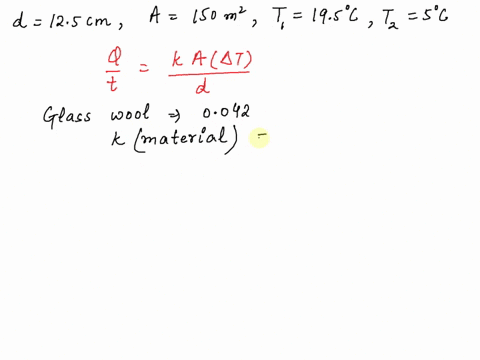 d = 12.5 cm, A = 150 m², T₁ = 19.5°C, T₂ = 5°C
Q/t = k A (ΔT)/d
Glass wool ⇒ 0.042
k (material) =